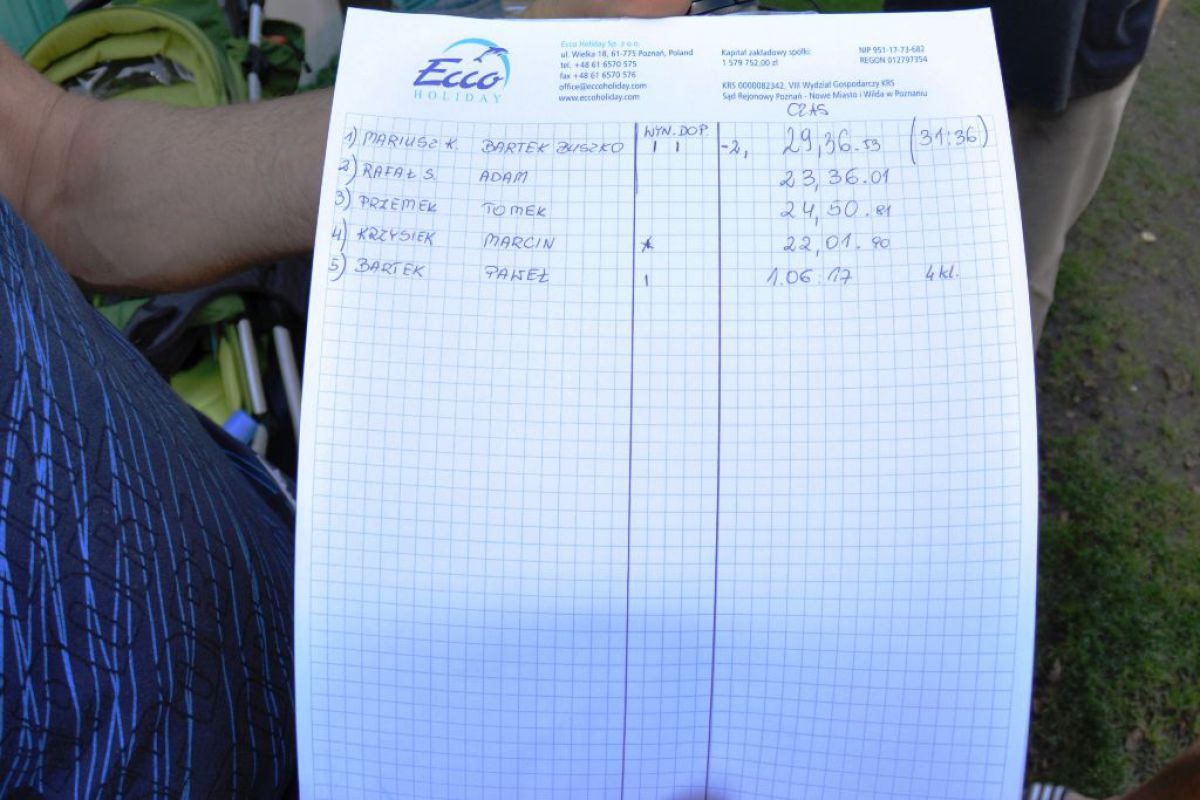 Ecco
HOLIDAY
Ecco Holiday Sp. z o.o.
ul. Wielka 18, 61-775 Poznań, Poland
tel. +48 61 6570 575
fax +48 61 6570 576
office@eccoholiday.com
www.eccoholiday.com
Kapitał zakładowy spółki:
1 579 752,00 zł
NIP 951-17-73-682
REGON 012797354
KRS 0000082342, VIII Wydział Gospodarczy KRS
Sąd Rejonowy Poznań - Nowe Miasto i Wilda w Poznaniu
WYN. DOP. CZAS
1) MARIUSZ K. BARTEK BUSZKO I I -2, 29,36.53 (31:36)
2) RAFAŁ S. ADAM 23,36.01
3) PRZEMEK TOMEK 24,50.81
4) KRZYSIEK MARCIN 22,01.90
5) BARTEK PAWEŁ I 1.06:17 4 kl.